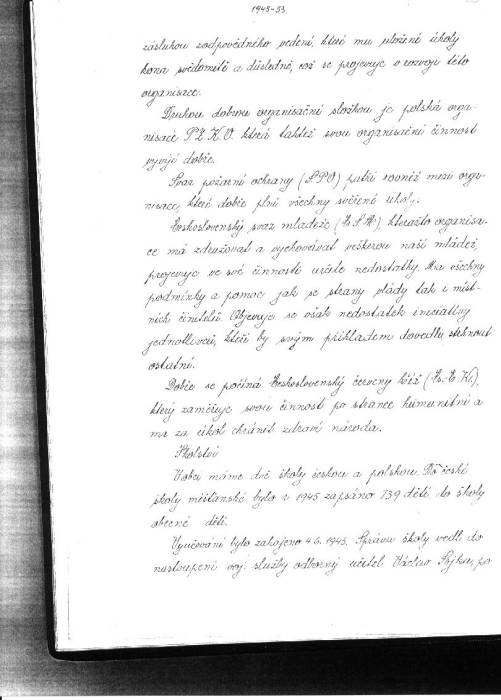 1945-53.
zásluhou zodpovědného vedení, které mu uložené úkoly
koná svědomitě a důsledně, což se projevuje v rozvoji této
organisace.
Druhou dobrou organisační složkou je polská orga-
nisace P.Z.K.O. která taktéž svou organisační činnost
vyvíjí dobře.
Svaz požární ochrany (S.P.O) patří rovněž mezi orga-
nisace, které dobře plní všechny svěřené úkoly.
Československý svaz mládeže (Č.S.M.) kteražto organisa-
ce má združovat a vychovávat veškerou naši mládež,
projevuje ve své činnosti určité nedostatky. Má všechny
podmínky a pomoc jak se strany vlády tak i míst-
ních činitelů. Objevuje se však nedostatek iniciativy
jednotlivců, kteří by svým příkladem dovedli strhnout
ostatní.
Dobře se počíná Československý červený kříž (Čs.č.K.),
který zaměřuje svou činnost po stránce humanitní a
má za úkol chránit zdraví národa.
Školství
V obci máme dvě školy českou a polskou. Do české
školy měšťanské bylo v 1945 zapsáno 739 dětí do školy
obecné dětí.
Vyučování bylo zahájeno 4.6.1945. Správu školy vedl do
nastoupení voj. služby odborný učitel Václav Sýkora, po